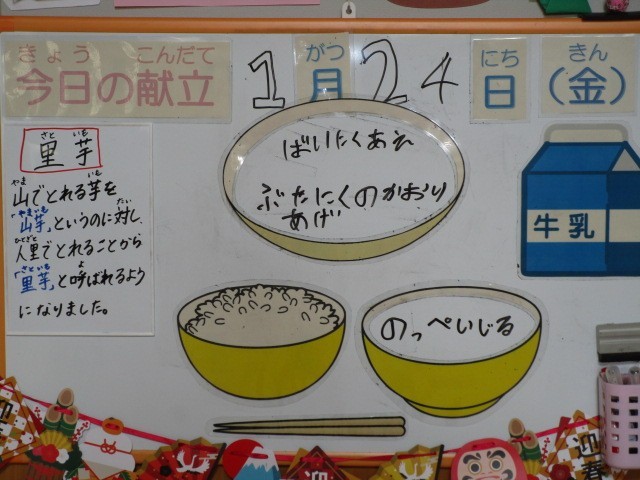 きょう こんだて
今日の献立
がつ にち きん
1月24日（金）
さと いも
里芋
やま いも
山でとれる芋を
やまいも たい
「山芋」というのに対し、
ひとざと
人里でとれることから
さといも よ
「里芋」と呼ばれるよう
になりました。
ぶたにくのかおり
あげ
牛乳
のっぺいじる
迎春